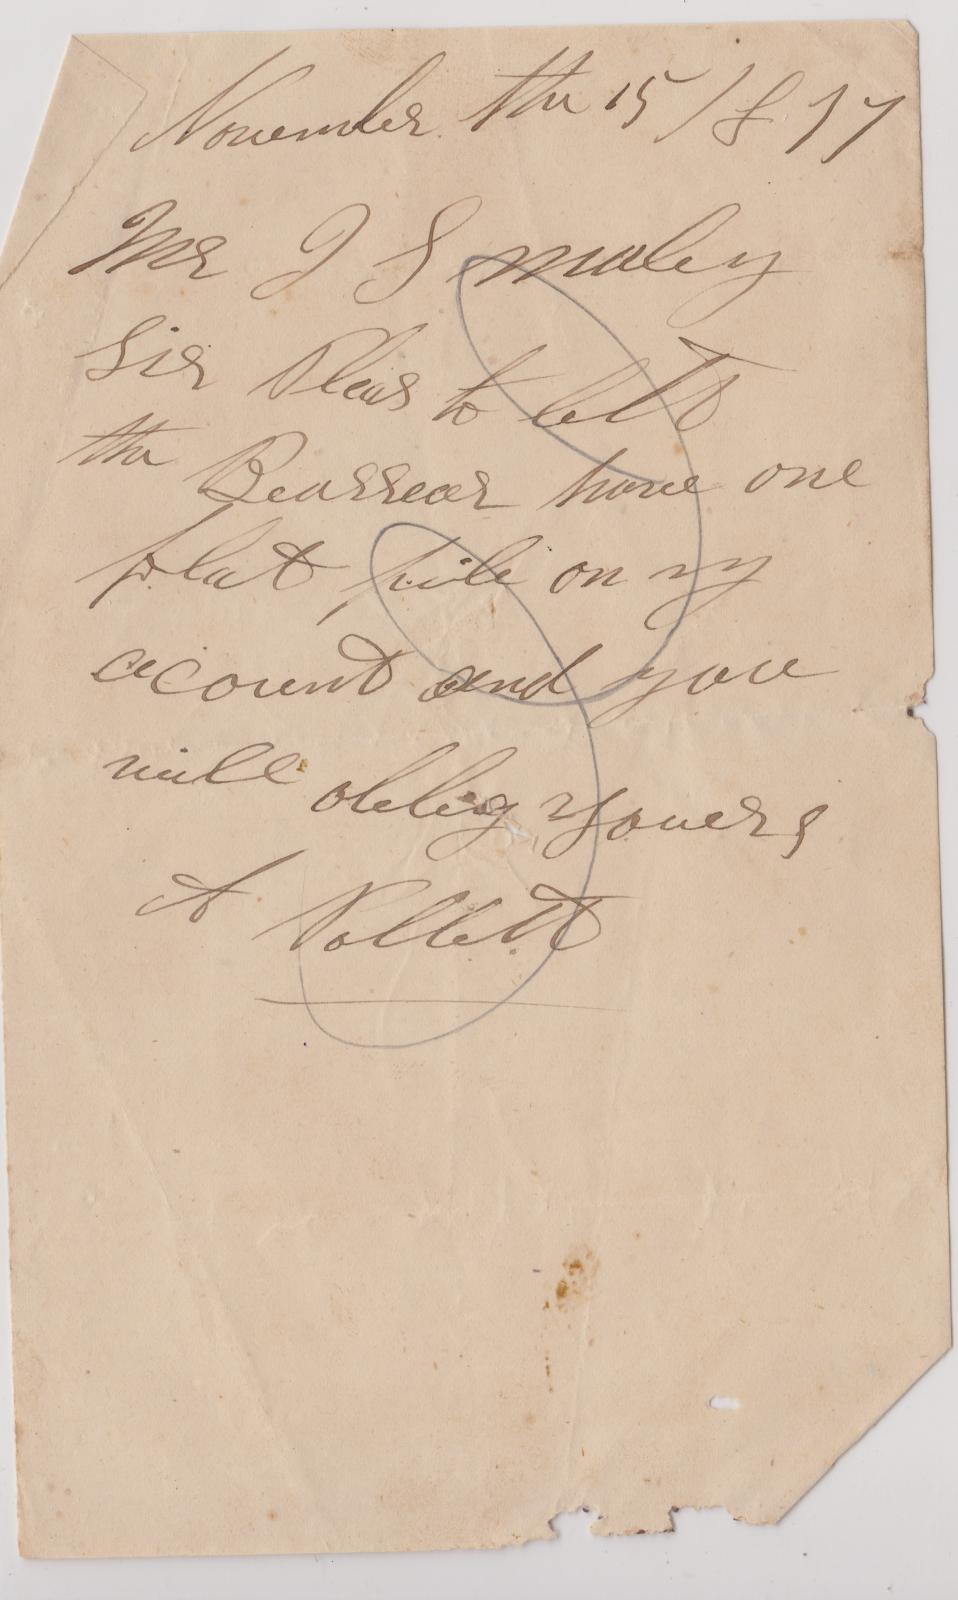 November the 15 / 877
Mr J Smaley
Sir Pleas to lett
the Bearrear have one
flat file on my
acount and you
will obleig Youers
A Pollett